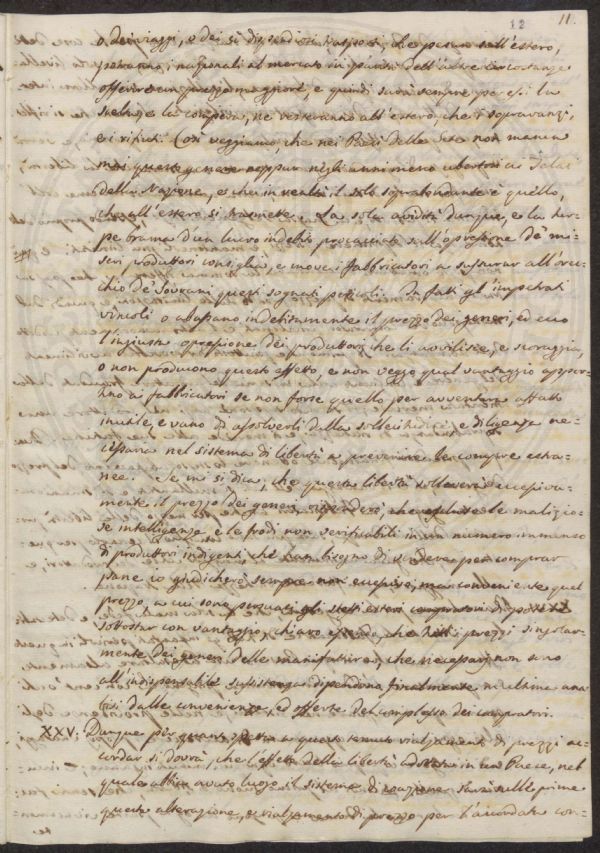 12 11.
o dei viaggi, o dei sì dispendiosi trasporti, che pesano sull'estero,
potranno i nazionali al mercato in parità dell'altre circostanze
offerire un prezzo maggiore, e quindi sarà sempre per essi la
scelta, e la compera, ne resteranno all'estero, che i sopravanzi,
e i rifiuti. Così veggiamo, che nei Paesi delle Sete non manca
mai questo genere neppur negli anni meno ubertosi ai Telai
della Nazione, e che in realtà il solo soprabondante è quello,
che all'estero si trasmette. La sola avidità dunque, e la tur-
pe brama d'un lucro indebito procacciato sull'opressione de' mi-
seri produttori consiglia, e move i fabbricatori a sussurar all'orec-
chio de' Sovrani questi sognati pericoli. In fatti gl'impetrati
vincoli o abassano indebitamente il prezzo dei generi, ed ecco
l'ingiusta opresione dei produttori, che li avvilisce, e scoraggia,
o non producono questo effetto, e non veggo qual vantaggio appor-
tino a fabbricatori se non forse quello per avventura affatto
inutile, e vano di assolverli dalla sollecitudine, e diligenza ne-
cessaria nel sistema di libertà a prevenire le compre estra-
nee. Se mi si dica, che questa libertà solleverà eccessiva-
mente il prezzo dei generi, risponderò, che escluse le malizio-
se intelligenze e le frodi non verificabili in un numero immenso
di produttori indigenti, che han bisogno di vendere per comprar
pane io giudicherò sempre non eccessivo, ma conveniente quel
prezzo, a cui sono persuasi gli stessi esteri compratori di poter
sottostar con vantaggio, chiaro essendo, che tutti i prezzi singolar-
mente dei generi delle manifatture, che necessarj non sono
all'indispensabile sussistenza dipendono finalmente in ultima ana-
lisi dalle convenienze, ed offerte del complesso dei compratori.
XXV. Dunque per quanto spetta a questo temuto rialzamento di prezzi ac-
cordar si dovrà, che l'effetto della libertà adottata in un Paese, nel
quale abbia avuto luogo il sistema di coazione sarà sulle prime
qualche alterazione, e rialzamento di prezzo per l'accordata con-